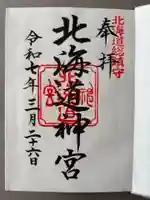 北海道総鎮守
奉拝
北海道神宮
令和七年三月二十六日